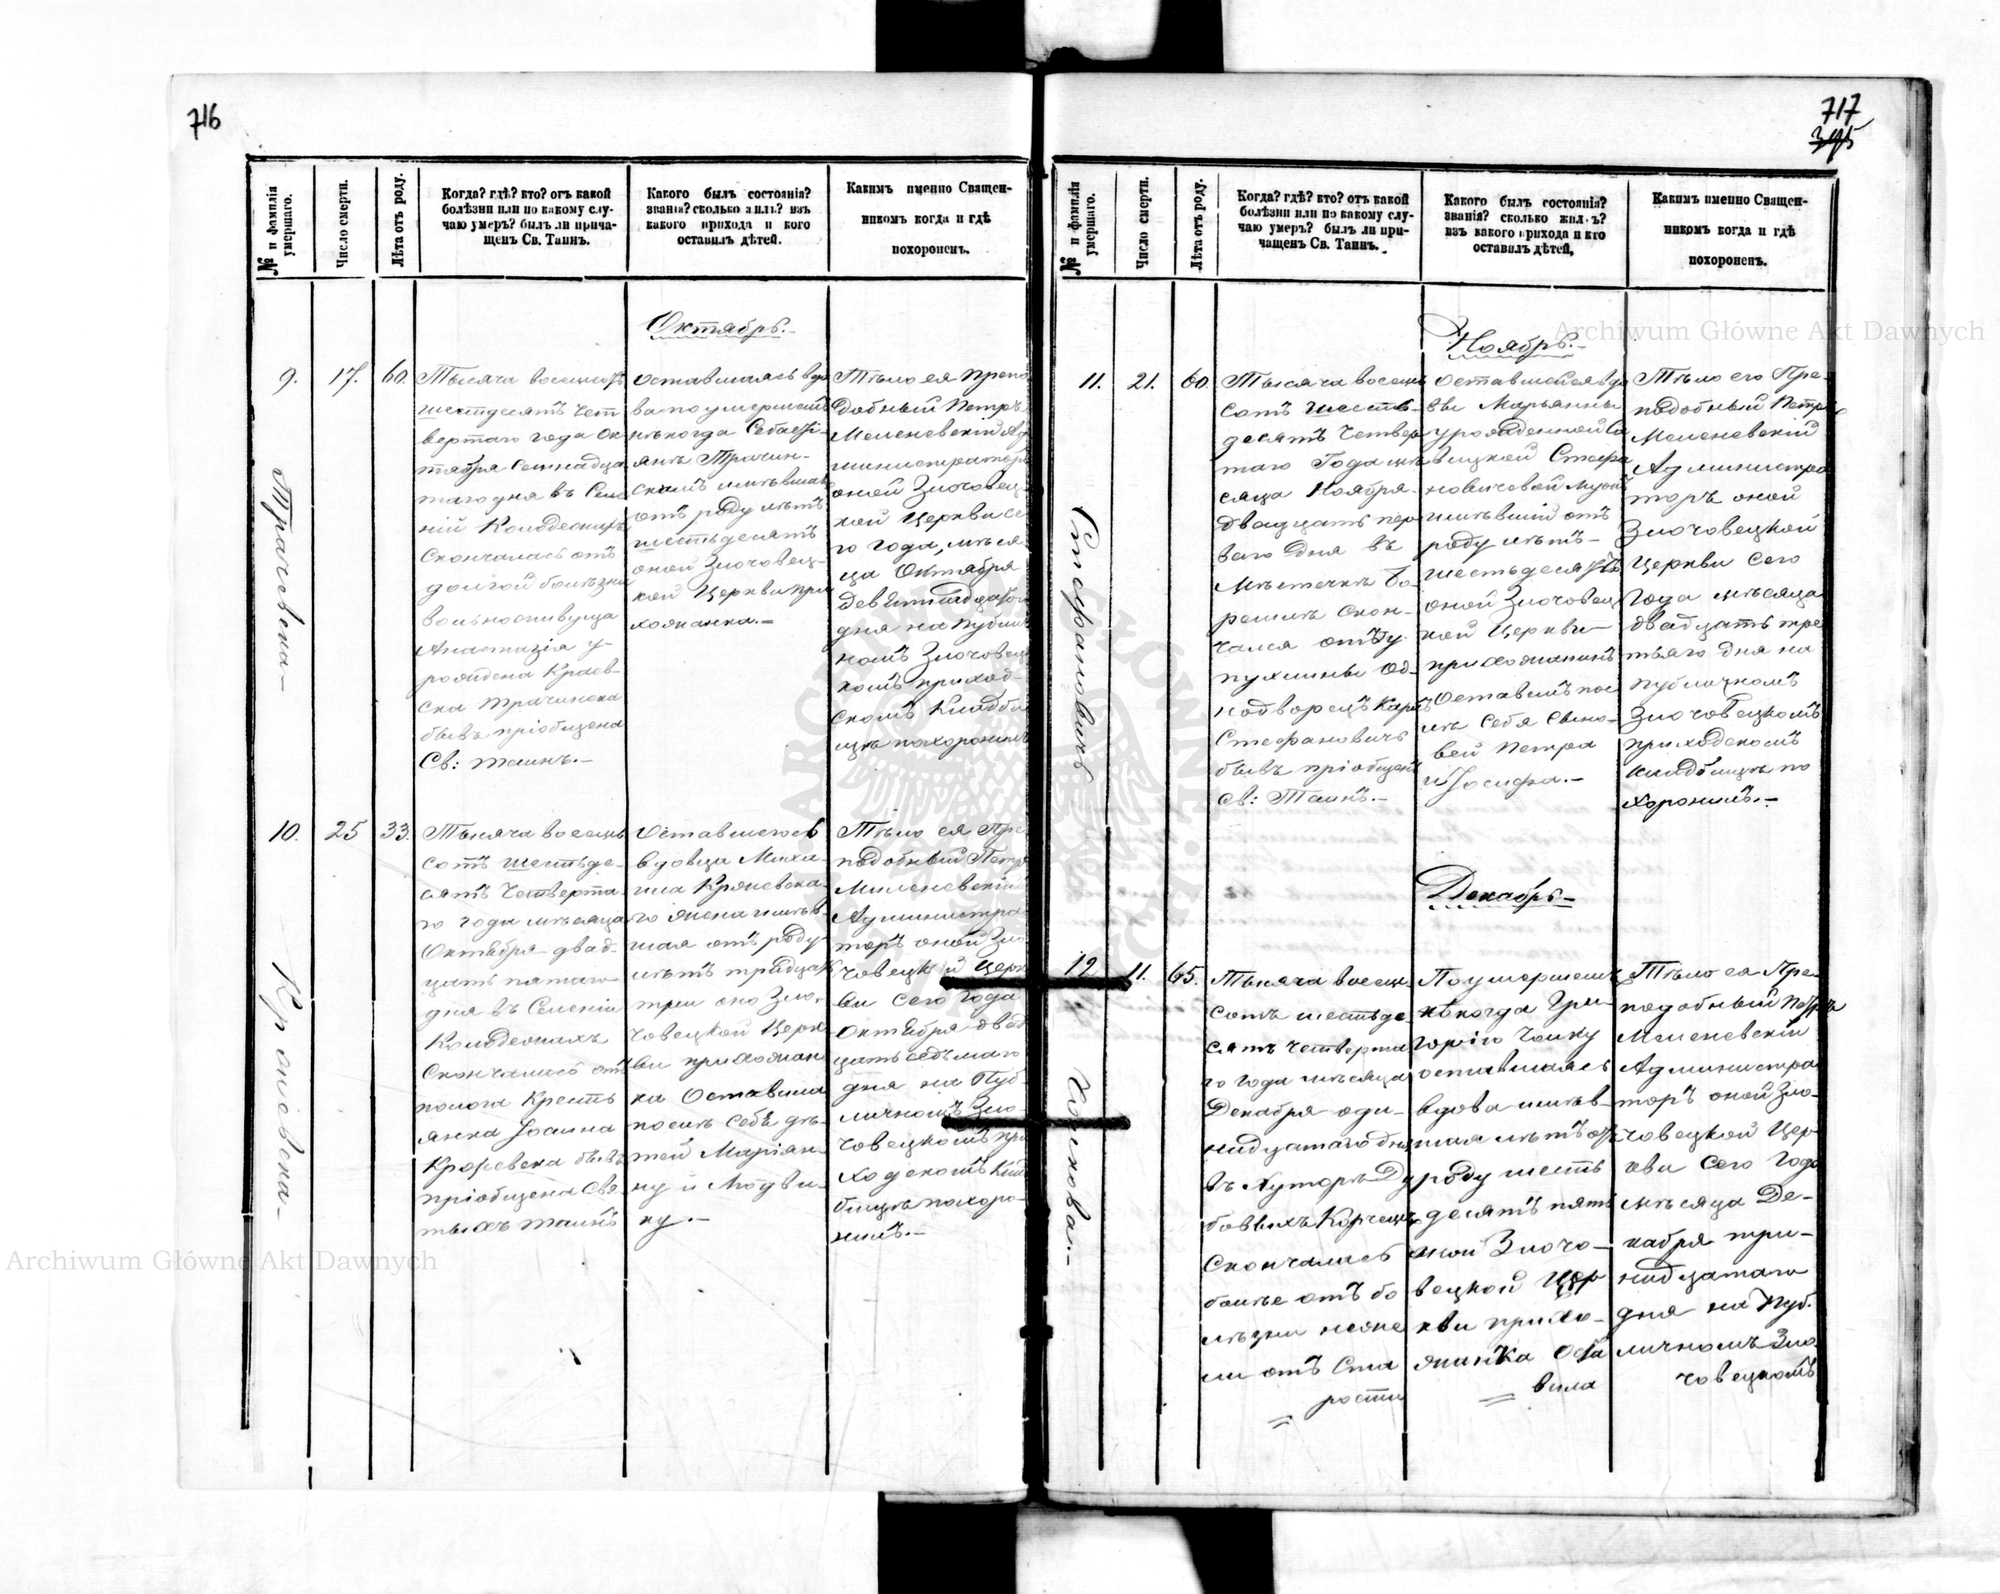 716
№ и фамилія умершаго.
Число смерти.
Лѣта отъ роду.
Когда? гдѣ? кто? отъ какой
болѣзни или по какому слу-
чаю умеръ? былъ ли прича-
щенъ Св. Таинъ.
Какого былъ состоянія?
званія? сколько жилъ? изъ
какого прихода и кого
оставилъ дѣтей.
Какимъ именно Священ-
никомъ когда и гдѣ
похороненъ.
Октябрь.-
9.
17.
60.
Трачевска-
Тысяча восемсотъ
шестдесятъ чет
вертаго года Ок
тября семнадца
таго дня въ Селе
ній Колодеонахъ
скончалась отъ
долгой болѣзни
вольноживуща
Анастазія у-
рождена Краев-
ска Трачинска
бывъ пріобщена
Св: таинъ.-
оставшаясь вдо
ва по умершемъ
нѣкогда Себасті-
янѣ Трачин-
скомъ имѣвшая
отъ роду лѣтъ
шестьдесятъ
оной Злочовец-
кой Церкви при
хожанка.-
Тѣло ея Препо
добный Петръ
Меленевскій Ад
министраторъ
оной Злочовец-
кой Церкви се
го года, мѣся
ца Октября
девятнадцатого
дня на Публич
номъ Злочовец
комъ приход-
скомъ кладби
щѣ похоронилъ
10.
25
33.
Кроневска-
Тысяча восемь
сотъ шестьде-
сятъ четверта
го года мѣсяца
Октября двад-
цать пятаго
дня въ Селеніи
Колодеонахъ
скончалась отъ
полога Кресть
янка Іоанна
Кроневска бывъ
пріобщена Свя
тыхъ таинъ
Оставшегось
вдовца Миха-
ила Кроневска-
го жена имѣв-
шая отъ роду
лѣтъ тридцать
три оно Зло-
човецкой Церк
ви прихожан
ка Оставила
послѣ себѣ дѣ-
тей Маріян-
ну и Людви-
ку.-
Тѣло ея Пре
подобный Петръ
Миленевскій
Администра
торъ оной Зло
човецкой Церк
ви сего Года
Октября двад
цать седьмаго
дня на Пуб-
личномъ Зло-
човецкомъ при
ходскомъ Клад
бищѣ похоро-
нилъ.-
717
395
№ и фамилія умершаго.
Число смерти.
Лѣта отъ роду.
Когда? гдѣ? кто? отъ какой
болѣзни или по какому слу-
чаю умеръ? былъ ли при-
чащенъ Св. Таинъ.
Какого былъ состоянія?
званія? сколько жилъ?
изъ какого прихода и кго
оставилъ дѣтей,
Какимъ именно Священ-
никомъ когда и гдѣ
похороненъ.
Ноябрь.-
11.
21.
60.
Стефановичъ
Тысяча восемь
сотъ шесть-
десятъ четвер
таго Года мѣ
сяца Ноября
двадцать пер
ваго дня въ
Мѣстечкѣ
скон-
чался отъ
пухлины Од-
нодворецъ Карлъ
Стефановичъ
бывъ пріобщенъ
Св: Таинъ.-
Оставшейся вдо
вы Марьянны
урожденной
Стефа
новичевой мужъ
имѣвшій отъ
роду лѣтъ-
шестьдесятъ
оной Злочовец
кой Церкви-
прихожанинъ
Оставилъ пос
лѣ себя сыно-
вей Петра
и Іосифа.-
Тѣло его Пре-
подобный Петръ
Меленевскій
Администра
торъ оной
Злочовецкой
Церкви сего
Года мѣсяца
двадцать тре
тьяго дня на
публичномъ
Злочовецкомъ
приходскомъ
кладбищѣ по
хоронилъ.-
Декабрь-
12
11.
65.
Тысяча восемь
сотъ шестьде
сятъ четверта
го года мѣсяца
Декабря оди-
надцатаго дня
въ Хуторѣ Ду
бовыхъ Корчецъ
Скончалась
болѣе отъ бо
лѣзни неже
ли отъ Ста
рости
По умершемъ
нѣкогда Гри-
горіго Чайку
оставшаясь
вдова имѣв-
шая лѣтъ отъ
роду шесть
десятъ пять
оной Злочо-
вецкой Цер
кви прихо-
жанка Оста
вила
Тѣло ея Пре-
подобный Петръ
Меленевскій
Администра
торъ оной Зло-
човецкой Цер
кви сего Года
мѣсяца Де-
кабря три-
надцатаго
дня на Пуб-
личномъ Зло-
човецкомъ
Archiwum Główne Akt Dawnych
Archiwum Główne Akt Dawnych